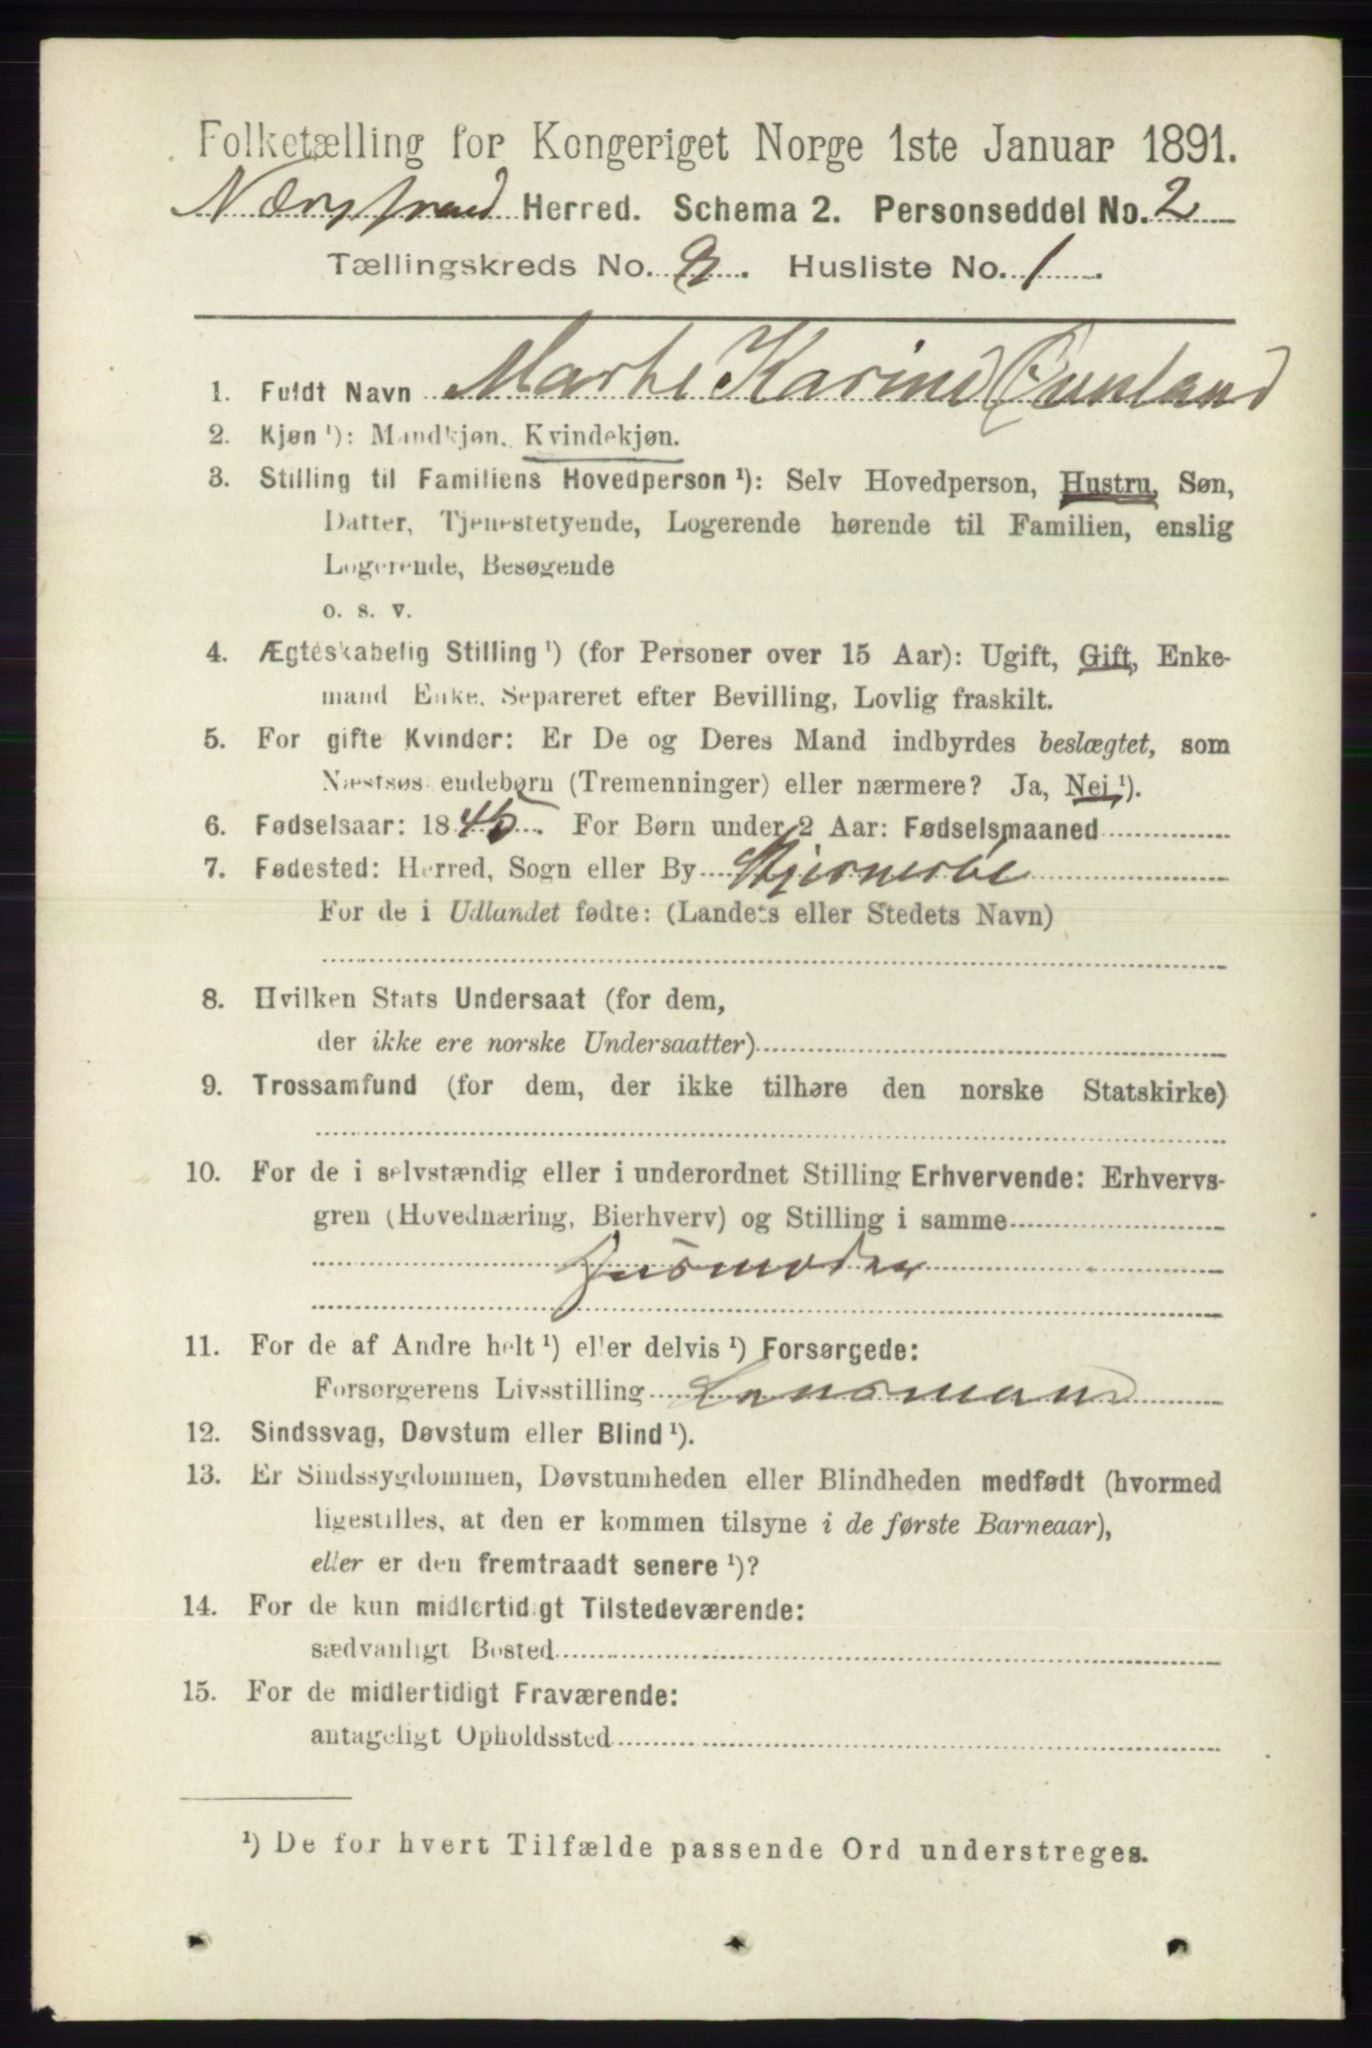 Folketælling for Kongeriget Norge 1ste Januar 1891.
Nærstrand Herred. Schema 2. Personseddel No. 2
Tællingskreds No. 2. Husliste No. 1.
1. Fuldt Navn Marte Karine
2. Kjøn¹): Mandkjøn. Kvindekjøn.
3. Stilling til Familiens Hovedperson¹): Selv Hovedperson, Hustru, Søn,
Datter, Tjenestetyende, Logerende hørende til Familien, enslig
Logerende, Besøgende
o. s. v.
4. Ægteskabelig Stilling¹) (for Personer over 15 Aar): Ugift, Gift, Enke-
mand Enke, Separeret efter Bevilling, Lovlig fraskilt.
5. For gifte Kvinder: Er De og Deres Mand indbyrdes beslægtet, som
Næstsøskendebørn (Tremenninger) eller nærmere? Ja, Nei¹).
6. Fødselsaar: 1845. For Børn under 2 Aar: Fødselsmaaned
7. Fødested: Herred, Sogn eller By Hjernerøe
For de i Udlandet fødte: (Landets eller Stedets Navn)
8. Hvilken Stats Undersaat (for dem,
der ikke ere norske Undersaatter)
9. Trossamfund (for dem, der ikke tilhøre den norske Statskirke)
10. For de i selvstændig eller i underordnet Stilling Erhvervende: Erhvervs-
gren (Hovednæring, Bierhverv) og Stilling i samme
Husmoder
11. For de af Andre helt¹) eller delvis¹) Forsørgede:
Forsørgerens Livsstilling Lensmand
12. Sindssvag, Døvstum eller Blind¹).
13. Er Sindssygdommen, Døvstumheden eller Blindheden medfødt (hvormed
ligestilles, at den er kommen tilsyne i de første Barneaar),
eller er den fremtraadt senere¹)?
14. For de kun midlertidigt Tilstedeværende:
sædvanligt Bosted
15. For de midlertidigt Fraværende:
antageligt Opholdssted
¹) De for hvert Tilfælde passende Ord understreges.